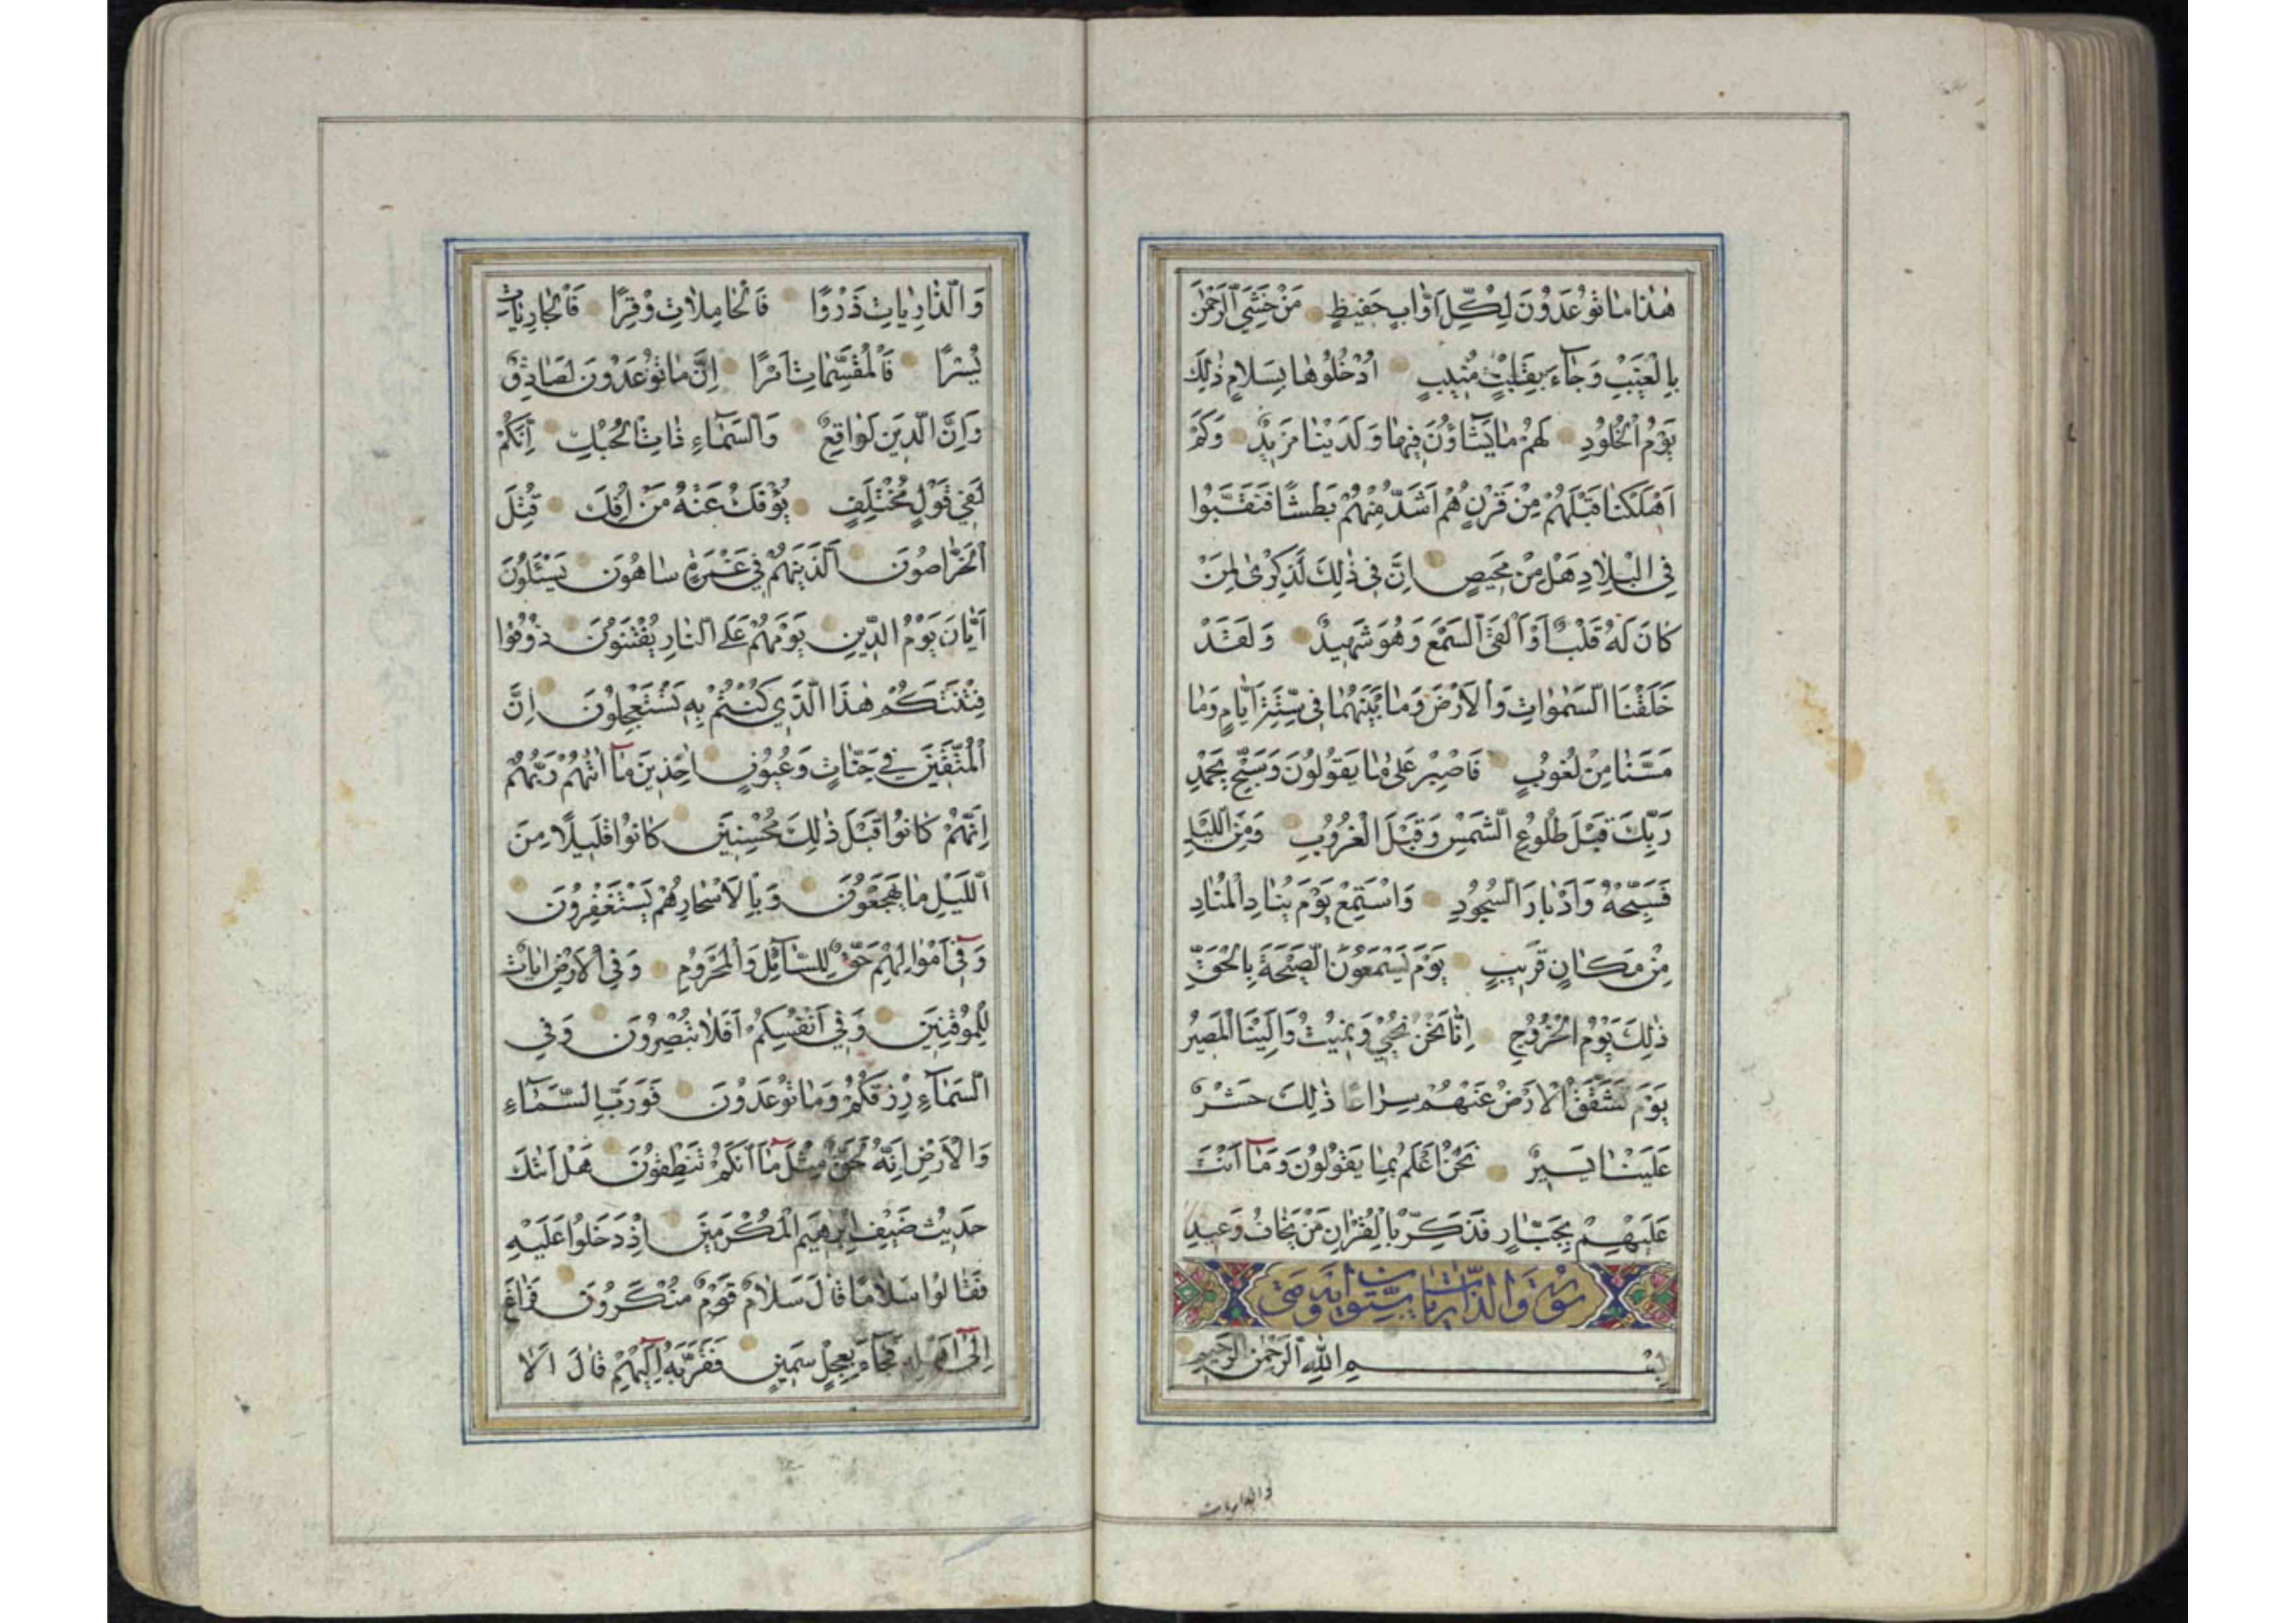 هٰذَا مَا تُوعَدُونَ لِكُلِّ اَوَّابٍ حَفِيظٍ مَنْ خَشِيَ الرَّحْمٰنَ
بِالْغَيْبِ وَجَآءَ بِقَلْبٍ مُنِيبٍ اُدْخُلُوهَا بِسَلَامٍ ذٰلِكَ
يَوْمُ الْخُلُودِ لَهُمْ مَا يَشَاؤُنَ فِيهَا وَلَدَيْنَا مَزِيدٌ وَكَمْ
اَهْلَكْنَا قَبْلَهُمْ مِنْ قَرْنٍ هُمْ اَشَدُّ مِنْهُمْ بَطْشًا فَنَقَّبُوا
فِي الْبِلَادِ هَلْ مِنْ مَحِيصٍ اِنَّ فِي ذٰلِكَ لَذِكْرٰى لِمَنْ
كَانَ لَهُ قَلْبٌ اَوْ اَلْقَى السَّمْعَ وَهُوَ شَهِيدٌ وَلَقَدْ
خَلَقْنَا السَّمٰوَاتِ وَالْاَرْضَ وَمَا بَيْنَهُمَا فِي سِتَّةِ اَيَّامٍ وَمَا
مَسَّنَا مِنْ لُغُوبٍ فَاصْبِرْ عَلٰى مَا يَقُولُونَ وَسَبِّحْ بِحَمْدِ
رَبِّكَ قَبْلَ طُلُوعِ الشَّمْسِ وَقَبْلَ الْغُرُوبِ وَمِنَ اللَّيْلِ
فَسَبِّحْهُ وَاَدْبَارَ السُّجُودِ وَاسْتَمِعْ يَوْمَ يُنَادِ الْمُنَادِ
مِنْ مَكَانٍ قَرِيبٍ يَوْمَ يَسْمَعُونَ الصَّيْحَةَ بِالْحَقِّ
ذٰلِكَ يَوْمُ الْخُرُوجِ اِنَّا نَحْنُ نُحْيِي وَنُمِيتُ وَاِلَيْنَا الْمَصِيرُ
يَوْمَ تَشَقَّقُ الْاَرْضُ عَنْهُمْ سِرَاعًا ذٰلِكَ حَشْرٌ
عَلَيْنَا يَسِيرٌ نَحْنُ اَعْلَمُ بِمَا يَقُولُونَ وَمَآ اَنْتَ
عَلَيْهِمْ بِجَبَّارٍ فَذَكِّرْ بِالْقُرْاٰنِ مَنْ يَخَافُ وَعِيدِ
سُورَةُ وَالذَّارِيَاتِ سِتُّونَ اٰيَةً وَهِيَ
بِسْمِ اللهِ الرَّحْمٰنِ الرَّحِيمِ
والذاريات
وَالذَّارِيَاتِ ذَرْوًا فَالْحَامِلَاتِ وِقْرًا فَالْجَارِيَاتِ
يُسْرًا فَالْمُقَسِّمَاتِ اَمْرًا اِنَّ مَا تُوعَدُونَ لَصَادِقٌ
وَاِنَّ الدِّينَ لَوَاقِعٌ وَالسَّمَآءِ ذَاتِ الْحُبُكِ اِنَّكُمْ
لَفِي قَوْلٍ مُخْتَلِفٍ يُؤْفَكُ عَنْهُ مَنْ اُفِكَ قُتِلَ
الْخَرَّاصُونَ اَلَّذِينَ هُمْ فِي غَمْرَةٍ سَاهُونَ يَسْئَلُونَ
اَيَّانَ يَوْمُ الدِّينِ يَوْمَ هُمْ عَلَى النَّارِ يُفْتَنُونَ ذُوقُوا
فِتْنَتَكُمْ هٰذَا الَّذِي كُنْتُمْ بِهِ تَسْتَعْجِلُونَ اِنَّ
الْمُتَّقِينَ فِي جَنَّاتٍ وَعُيُونٍ اٰخِذِينَ مَآ اٰتٰهُمْ رَبُّهُمْ
اِنَّهُمْ كَانُوا قَبْلَ ذٰلِكَ مُحْسِنِينَ كَانُوا قَلِيلًا مِنَ
اللَّيْلِ مَا يَهْجَعُونَ وَبِالْاَسْحَارِ هُمْ يَسْتَغْفِرُونَ
وَفِيٓ اَمْوَالِهِمْ حَقٌّ لِلسَّآئِلِ وَالْمَحْرُومِ وَفِي الْاَرْضِ اٰيَاتٌ
لِلْمُوقِنِينَ وَفِي اَنْفُسِكُمْ اَفَلَا تُبْصِرُونَ وَفِي
السَّمَآءِ رِزْقُكُمْ وَمَا تُوعَدُونَ فَوَرَبِّ السَّمَآءِ
وَالْاَرْضِ اِنَّهُ لَحَقٌّ مِثْلَ مَآ اَنَّكُمْ تَنْطِقُونَ هَلْ اَتٰكَ
حَدِيثُ ضَيْفِ اِبْرٰهِيمَ الْمُكْرَمِينَ اِذْ دَخَلُوا عَلَيْهِ
فَقَالُوا سَلَامًا قَالَ سَلَامٌ قَوْمٌ مُنْكَرُونَ فَرَاغَ
اِلٰىٓ اَهْلِهِ فَجَآءَ بِعِجْلٍ سَمِينٍ فَقَرَّبَهُ اِلَيْهِمْ قَالَ اَلَا